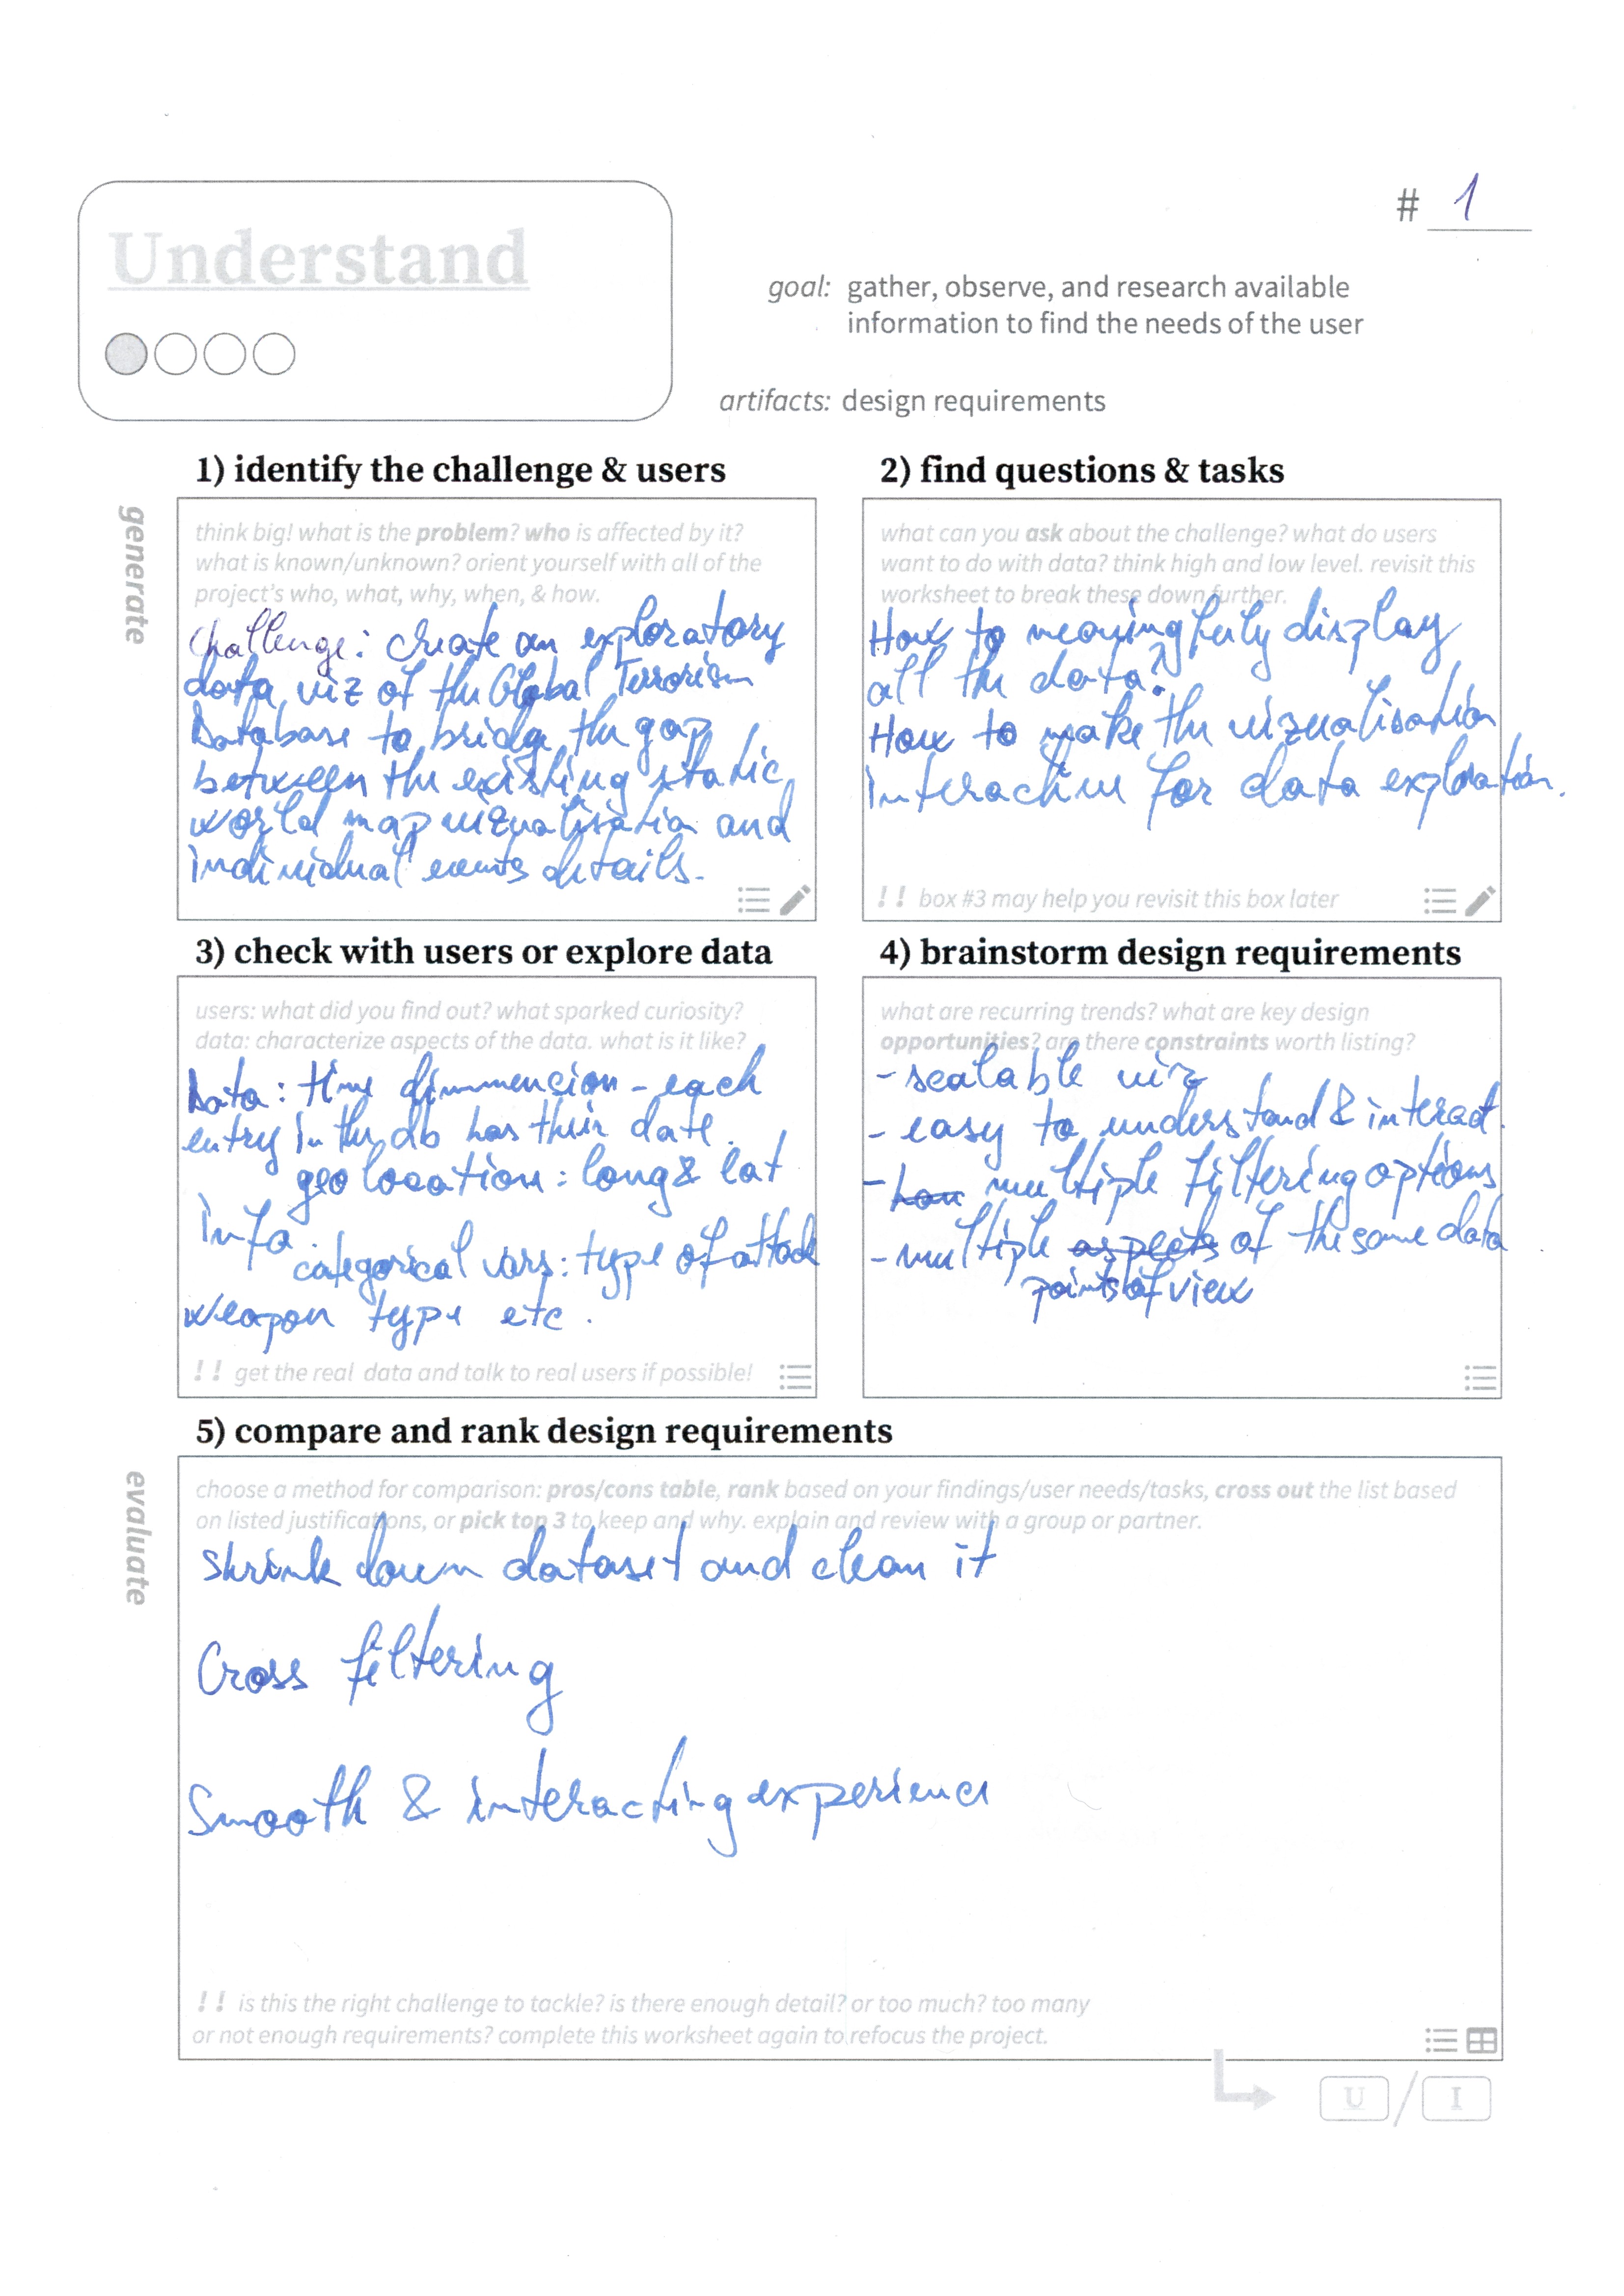 # 1
Understand
goal: gather, observe, and research available
information to find the needs of the user
artifacts: design requirements
generate
1) identify the challenge & users
think big! what is the problem? who is affected by it?
what is known/unknown? orient yourself with all of the
project's who, what, why, when, & how.
Challenge: create an exploratory
data viz of the Global Terrorism
Database to bridge the gap
between the existing static
world map vizualisation and
individual events details.
2) find questions & tasks
what can you ask about the challenge? what do users
want to do with data? think high and low level. revisit this
worksheet to break these down further.
How to meaningfuly display
all the data?
How to make the vizualisation
interactive for data exploration.
!! box #3 may help you revisit this box later
3) check with users or explore data
users: what did you find out? what sparked curiosity?
data: characterize aspects of the data. what is it like?
Data: time dimmencion - each
entry in the db has their date.
geo location: long & lat
info.
categorical vars: type of attack
weapon type etc.
!! get the real data and talk to real users if possible!
4) brainstorm design requirements
what are recurring trends? what are key design
opportunities? are there constraints worth listing?
- scalable viz
- easy to understand & interact.
- multiple filtering options
- multiple aspects of the same data
points of view
5) compare and rank design requirements
evaluate
choose a method for comparison: pros/cons table, rank based on your findings/user needs/tasks, cross out the list based
on listed justifications, or pick top 3 to keep and why. explain and review with a group or partner.
shrink down dataset and clean it
Cross filtering
Smooth & interacting experience
!! is this the right challenge to tackle? is there enough detail? or too much? too many
or not enough requirements? complete this worksheet again to refocus the project.
U / I